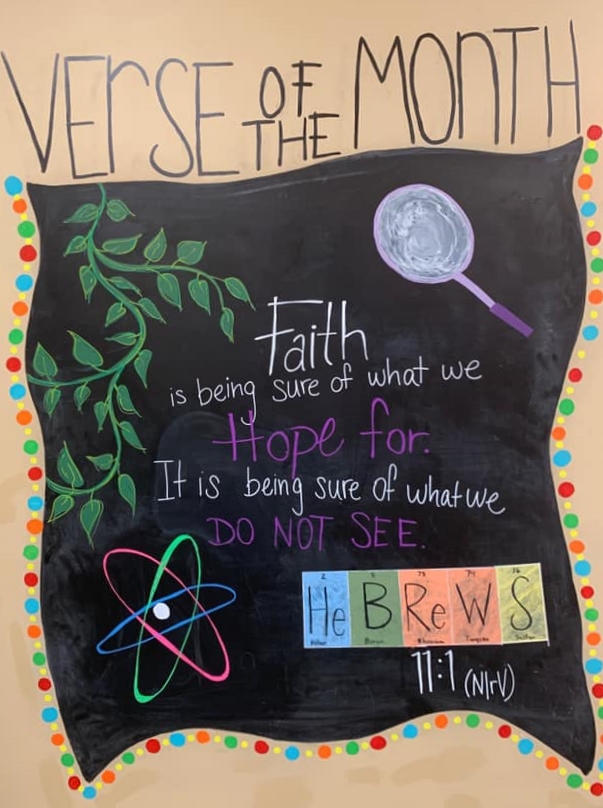 VErSE OF THE MONTH
Faith
is being sure of what we
Hope for.
It is being sure of what we
DO NOT SEE.
2 5 75 74 16
He B Re W S
Boron Rhenium Tungsten Sulfur
11:1 (NIrV)